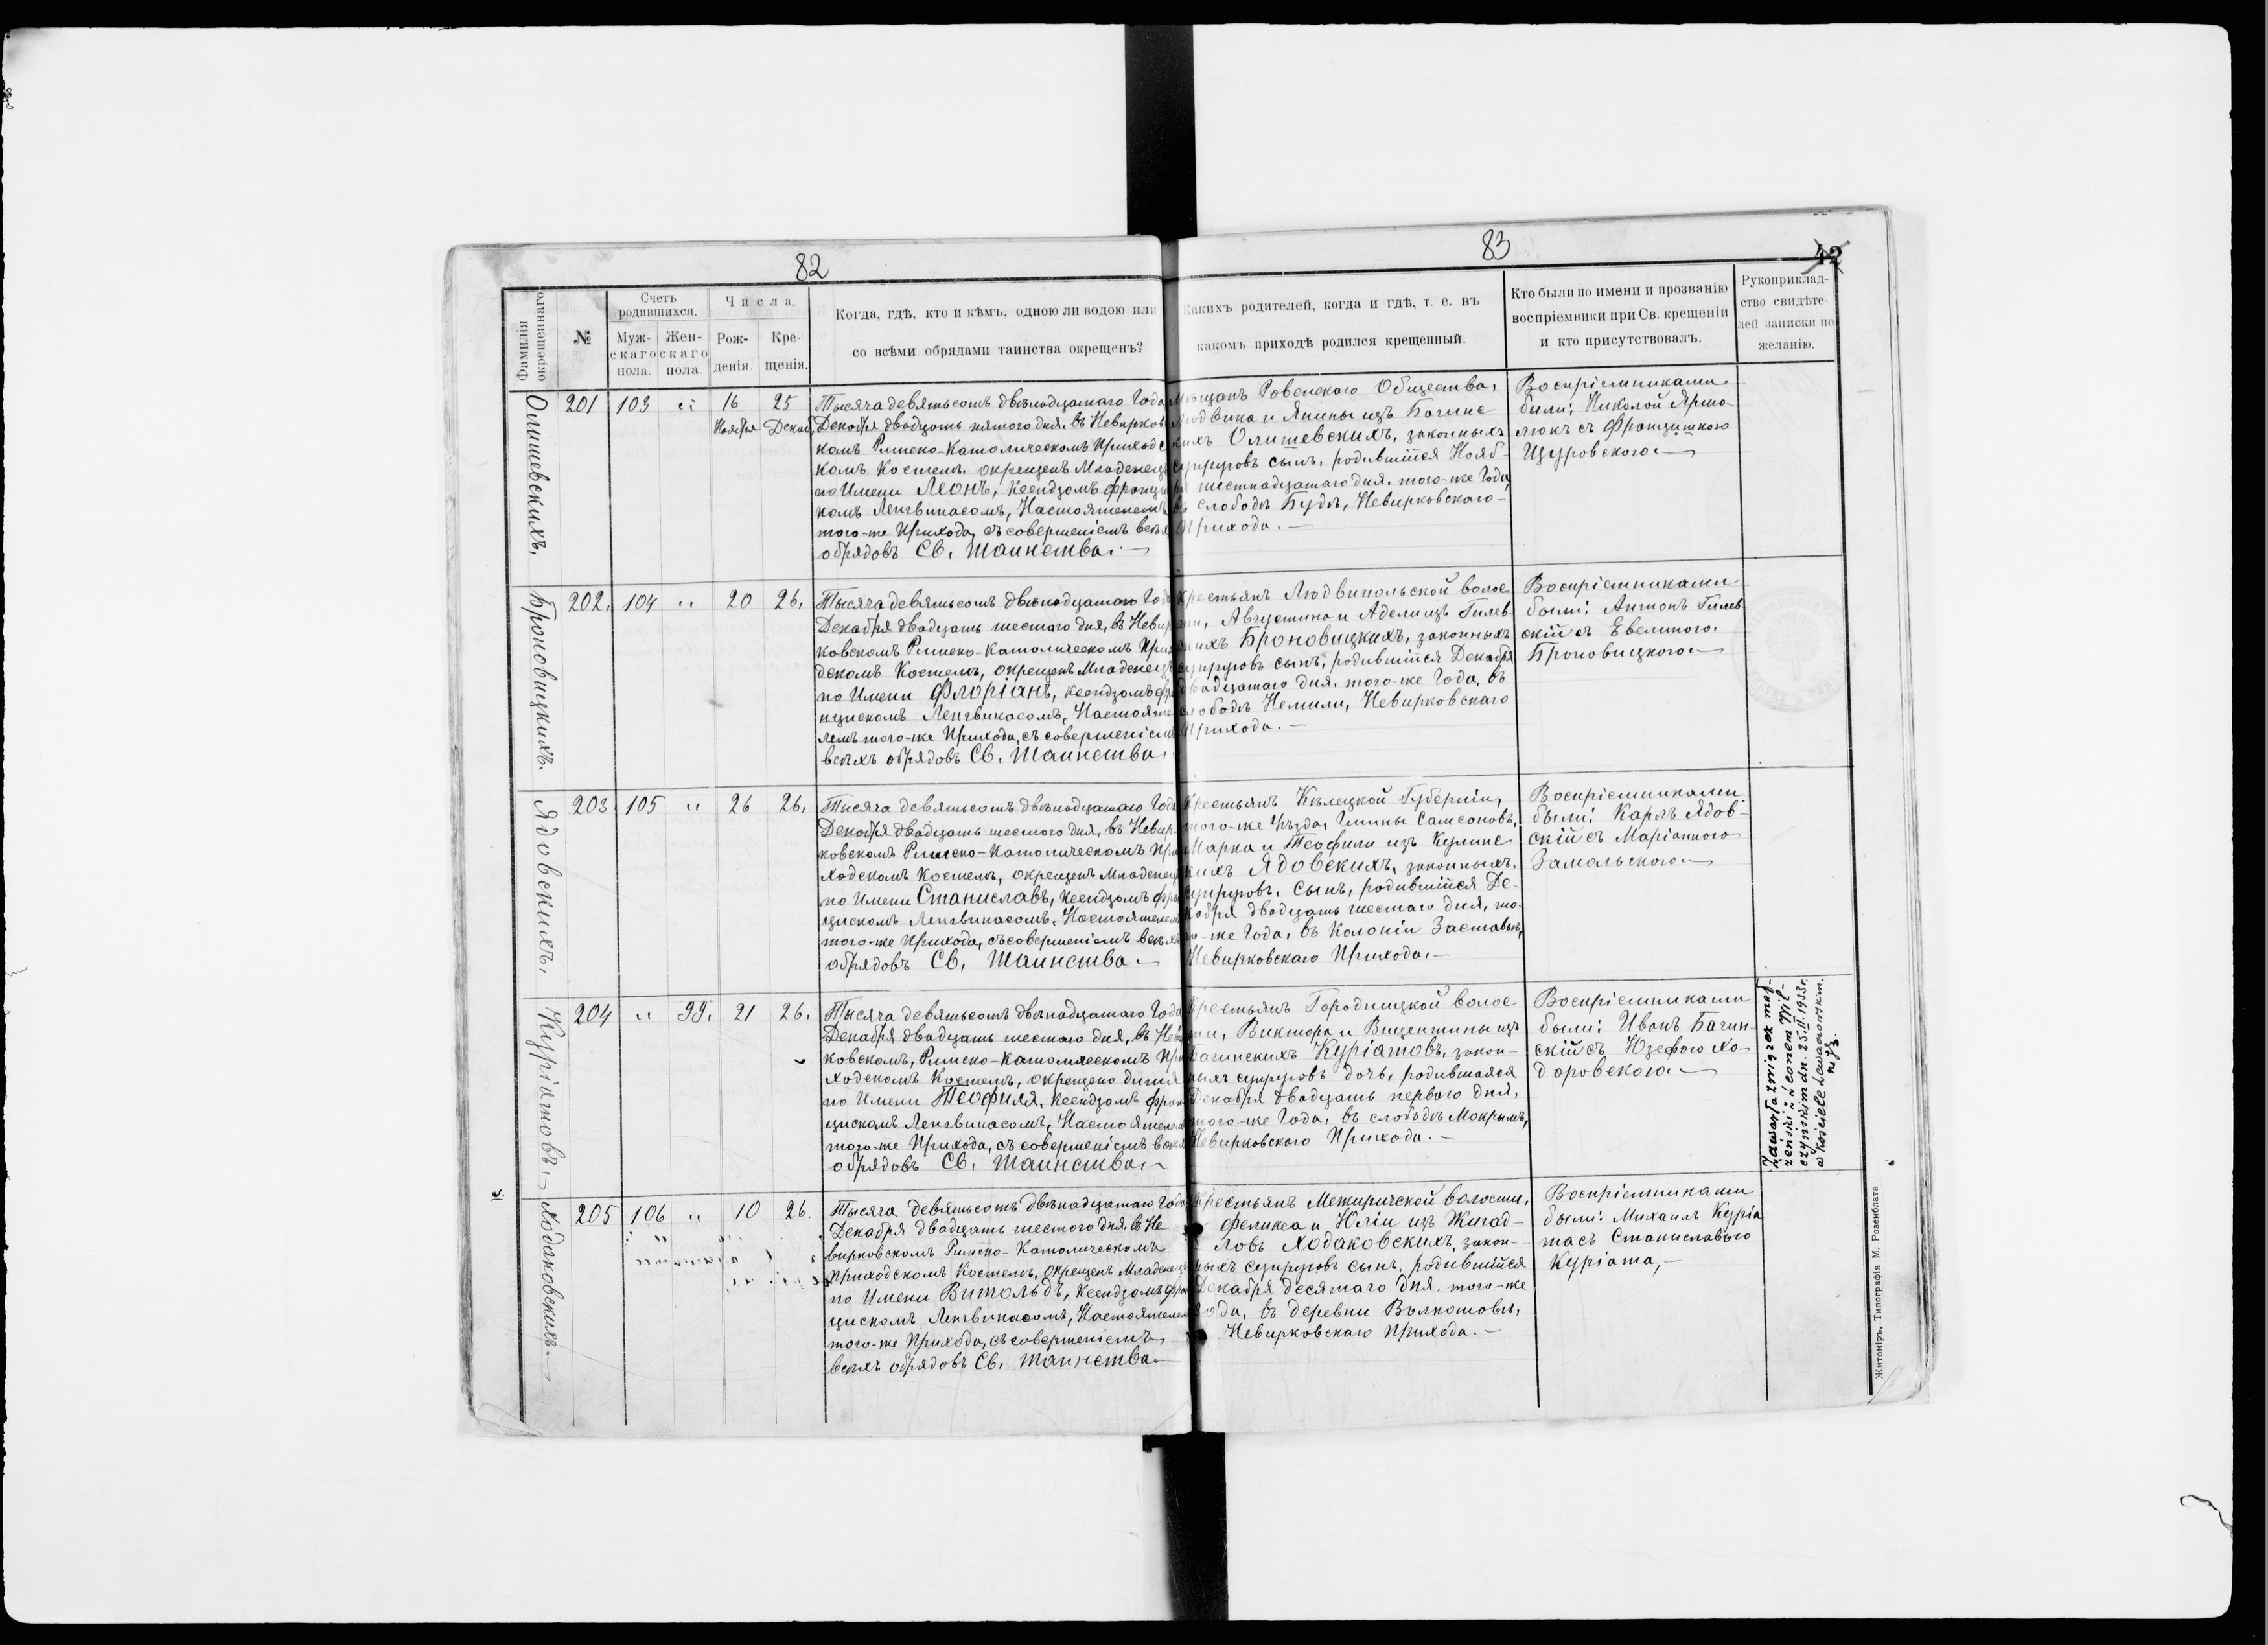 82
Фамилія окрещеннаго
№
Счетъ родившихся.
Муж-скаго пола.
Жен-скаго пола.
Числа.
Рож-денія.
Кре-щенія.
Когда, гдѣ, кто и кѣмъ, одною ли водою или
со всѣми обрядами таинства окрещенъ?
83
42
Какихъ родителей, когда и гдѣ, т. е. въ
какомъ приходѣ родился крещенный.
Кто были по имени и прозванію
воспріемники при Св. крещеніи
и кто присутствовалъ.
Рукоприклад-
ство свидѣте-
лей записки по
желанію.
Олишевскихъ.
201 103 " 16 25
Ноября Декаб.
Тысяча девятьсотъ двѣнадцатаго Года
Декабря двадцать пятого дня, въ Невирков
комъ Римско-Католическомъ Приходс
комъ Костелѣ, окрещенъ Младенецъ
по Имени Леонъ, Ксендзомъ Францис
комъ Ленгвинасомъ, Настоятелемъ
того-же Прихода, съ совершеніемъ всѣх
обрядовъ Св. Таинства.—
Мѣщанъ Ровенскаго Общества,
Людвика и Янины изъ Багинс
кихъ Олишевскихъ, законныхъ
супруговъ сынъ, родившійся Нояб-
ря шестнадцатаго дня, того-же Года,
въ слободѣ Будѣ, Невирковскаго
Прихода.—
Воспріемниками
были: Николай Ярмо-
люкъ съ Францишкою
Щуровскою.—
Броновицкихъ.
202. 104 " 20 26.
Тысяча девятьсотъ двѣнадцатаго Года
Декабря двадцать шестаго дня, въ Невир
ковскомъ Римско-Католическомъ Прихо
дскомъ Костелѣ, окрещенъ Младенецъ
по Имени Флоріанъ, Ксендзомъ Фра
нцискомъ Ленгвинасомъ, Настояте
лемъ того-же Прихода, съ совершеніемъ
всѣхъ обрядовъ Св. Таинства.
Крестьянъ Людвипольской волос
ти, Августина и Адели изъ Гилев
скихъ Броновицкихъ, законныхъ
супруговъ сынъ, родившійся Декабря
двадцатаго дня, того-же Года, въ
слободѣ Немили, Невирковскаго
Прихода.—
Воспріемниками
были: Антонъ Гилев
скій съ Евелиною
Броновицкою.—
Ядовскихъ.
203 105 " 26 26.
Тысяча девятьсотъ двѣнадцатаго Года
Декабря двадцать шестого дня, въ Невир
ковскомъ Римско-Католическомъ При
ходскомъ Костелѣ, окрещенъ Младенецъ
по Имени Станиславъ, Ксендзомъ Фран
цискомъ Ленгвинасомъ, Настоятелемъ
того-же Прихода, съ совершеніемъ всѣхъ
обрядовъ Св. Таинства.—
Крестьянъ Кѣлецкой Губерніи,
того-же Уѣзда, Гмины Самсоновъ,
Марка и Теофили изъ Кулинс
кихъ Ядовскихъ, законныхъ
супруговъ, сынъ, родившійся Де-
кабря двадцать шестаго дня, то
го-же Года, въ Колоніи Заставѣ,
Невирковскаго Прихода.—
Воспріемниками
были: Карлъ Ядов-
скій съ Маріанною
Замольскою.—
Куріатовъ.—
204 " 99. 21 26.
Тысяча девятьсотъ двѣнадцатаго Года
Декабря двадцать шестаго дня, въ Неви
ковскомъ, Римско-Католическомъ При
ходскомъ Костелѣ, окрещено дитя
по Имени Теофиля, Ксендзомъ Фран
цискомъ Ленгвинасомъ, Настоятелем
того-же Прихода, съ совершеніемъ всѣх
обрядовъ Св. Таинства.—
Крестьянъ Городницкой волос
ти, Виктора и Винцентины изъ
Багинскихъ Куріатовъ, закон-
ныхъ супруговъ дочь, родившаяся
Декабря двадцать перваго дня,
того-же Года, въ слободѣ Мокрымъ,
Невирковскаго Прихода.—
Воспріемниками
были: Иванъ Багин-
скій съ Юзефою Хо-
доровскою.—
Zawarła związek mał-
żeński z Leonem Wil-
czyńskim dn. 25.II.1933 r.
w kościele
Ходаковскихъ.—
205 106 " 10 26.
Тысяча девятьсотъ двѣнадцатаго Года
Декабря двадцать шестого дня, въ Не
вирковскомъ Римско-Католическомъ
Приходскомъ Костелѣ, окрещенъ Младенецъ
по Имени Витольдъ, Ксендзомъ Фран
цискомъ Ленгвинасомъ, Настоятелем
того-же Прихода, съ совершеніемъ
всѣхъ обрядовъ Св. Таинства.—
Крестьянъ Межиричской волости,
Феликса и Юліи изъ Жигад-
ловъ Ходаковскихъ, закон-
ныхъ супруговъ сынъ, родившійся
Декабря десятаго дня, того-же
Года, въ деревни Вѣлкотовѣ,
Невирковскаго Прихода.—
Воспріемниками
были: Михаилъ Куріа
тасъ Станиславою
Куріата,—
Житоміръ, Типографія М. Розенблата